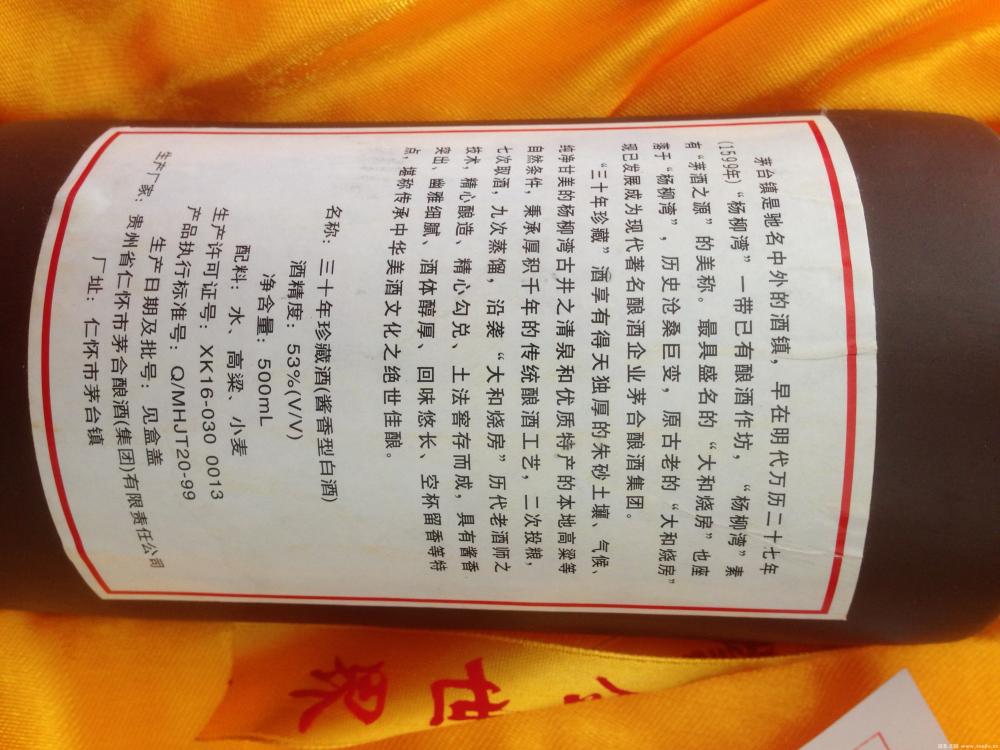 茅台镇是驰名中外的酒镇，早在明代万历二十七年
(1599年)“杨柳湾”一带已有酿酒作坊，“杨柳湾”素
有“茅酒之源”的美称。最具盛名的“大和烧房”也座
落于“杨柳湾”，历史沧桑巨变，原古老的“大和烧房”
现已发展成为现代著名酿酒企业茅合酿酒集团。
“三十年珍藏”酒享有得天独厚的朱砂土壤、气候、
纯净甘美的杨柳湾古井之清泉和优质特产的本地高粱等
自然条件，秉承厚积千年的传统酿酒工艺，二次投粮，
七次取酒，九次蒸馏，沿袭“大和烧房”历代老酒师之
技术，精心酿造、精心勾兑、土法窖存而成，具有酱香
突出、幽雅细腻、酒体醇厚、回味悠长、空杯留香等特
点，堪称传承中华美酒文化之绝世佳酿。
名称：三十年珍藏酒(酱香型白酒)
酒精度：53%(V/V)
净含量：500mL
配料：水、高粱、小麦
生产许可证号：XK16-030 0013
产品执行标准号：Q/MHJT20-99
生产日期及批号：见盒盖
生产厂家：贵州省仁怀市茅合酿酒(集团)有限责任公司
厂址：仁怀市茅台镇
世